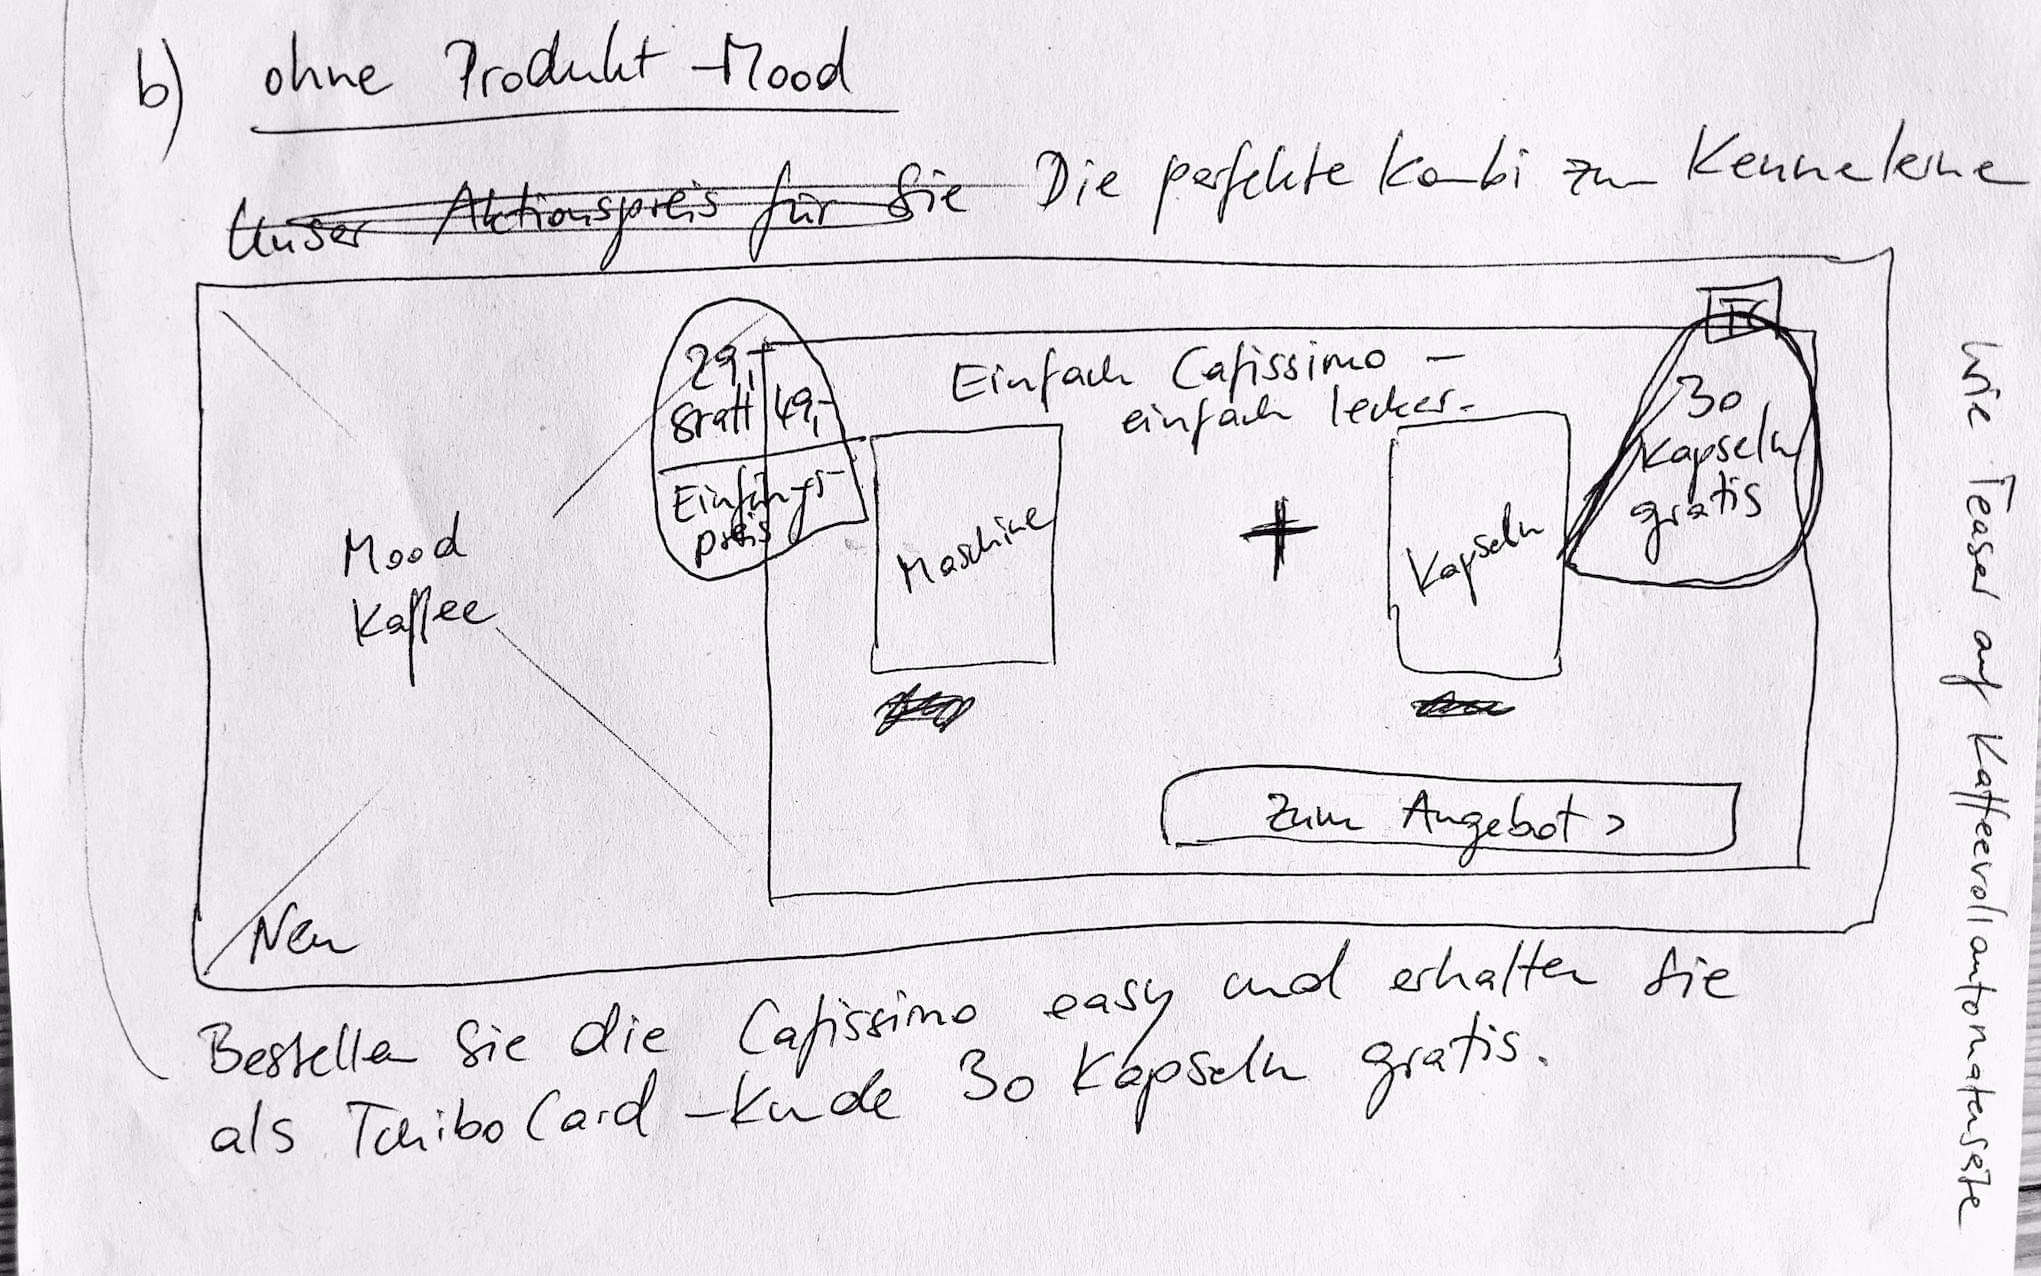 b) ohne Produkt-Mood
Unser Aktionspreis für Sie Die perfekte Kombi zum Kennenlernen
TC
29,-
statt 49,-
Einführungs-
preis
Einfach Cafissimo -
einfach lecker.
30
Kapseln
gratis
Mood
Kaffee
Maschine
+
Kapseln
Zum Angebot >
Neu
Bestellen Sie die Cafissimo easy und erhalten Sie
als TchiboCard-Kunde 30 Kapseln gratis.
wie Teaser auf Kaffeevollautomatenseite